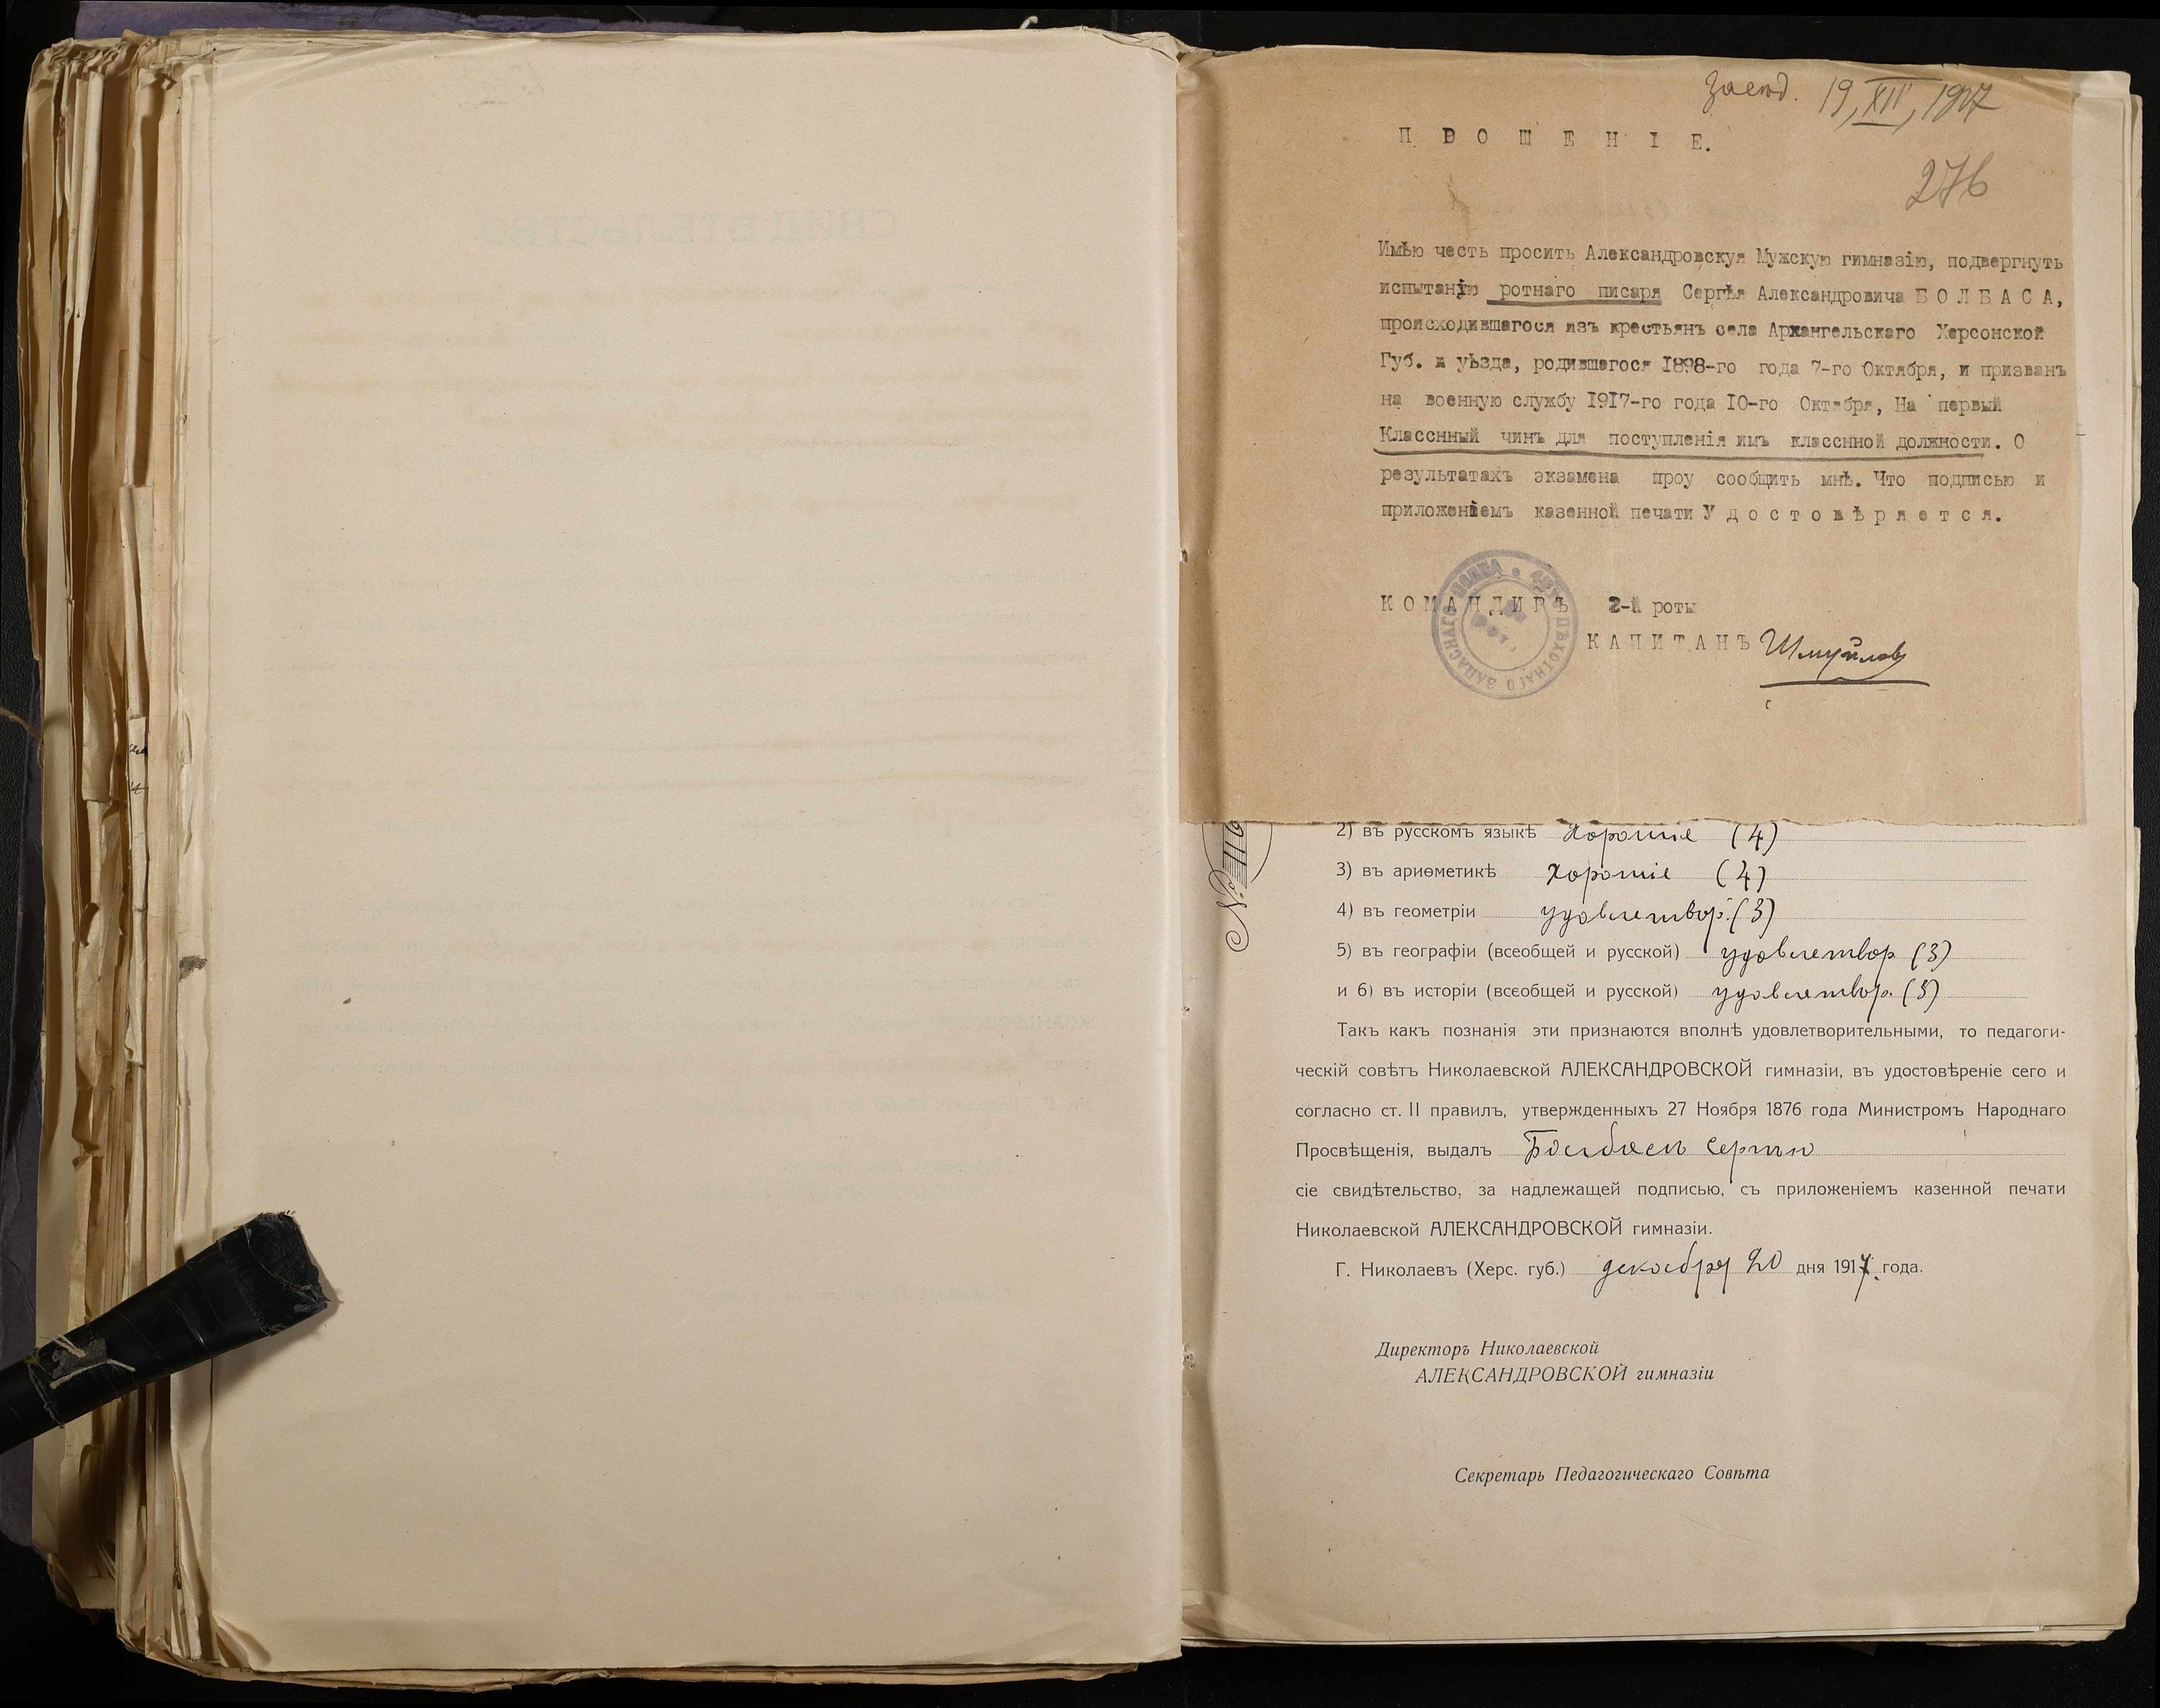 Засѣд. 19, XII, 1917
П Р О Ш Е Н І Е.
276
Имѣю честь просить Александровскуя Мужскую гимназію, подвергнуть
испытанію ротнаго писаря Сергѣя Александровича Б О Л Б А С А,
происходившагося изъ крестьянъ села Архангельскаго Херсонской
Губ. и уѣзда, родившагося 1898-го года 7-го Октября, и призванъ
на военную службу 1917-го года 10-го Октября, На первый
Класснный чинъ для поступленія имъ класснной должности. О
результатахъ экзамена проу сообщить мнѣ. Что подписью и
приложеніемъ казенной печати У д о с т о в ѣ р я е т с я.
К О М А Н Д И Р Ъ 2-й роты
К А П И Т А Н Ъ Шмуйлов
ПѢХОТНАГО ЗАПАСНАГО ПОЛКА
2) въ русскомъ языкѣ хорошіе (4)
3) въ ариѳметикѣ хорошіе (4)
4) въ геометріи удовлетвор. (3)
5) въ географіи (всеобщей и русской) удовлетвор (3)
и 6) въ исторіи (всеобщей и русской) удовлетвор. (3)
Такъ какъ познанія эти признаются вполнѣ удовлетворительными, то педагоги-
ческій совѣтъ Николаевской АЛЕКСАНДРОВСКОЙ гимназіи, въ удостовѣреніе сего и
согласно ст. II правилъ, утвержденныхъ 27 Ноября 1876 года Министромъ Народнаго
Просвѣщенія, выдалъ Болбасъ Сергѣю
сіе свидѣтельство, за надлежащей подписью, съ приложеніемъ казенной печати
Николаевской АЛЕКСАНДРОВСКОЙ гимназіи.
Г. Николаевъ (Херс. губ.) декабря 20 дня 1917 года.
Директоръ Николаевской
АЛЕКСАНДРОВСКОЙ гимназіи
Секретарь Педагогическаго Совѣта